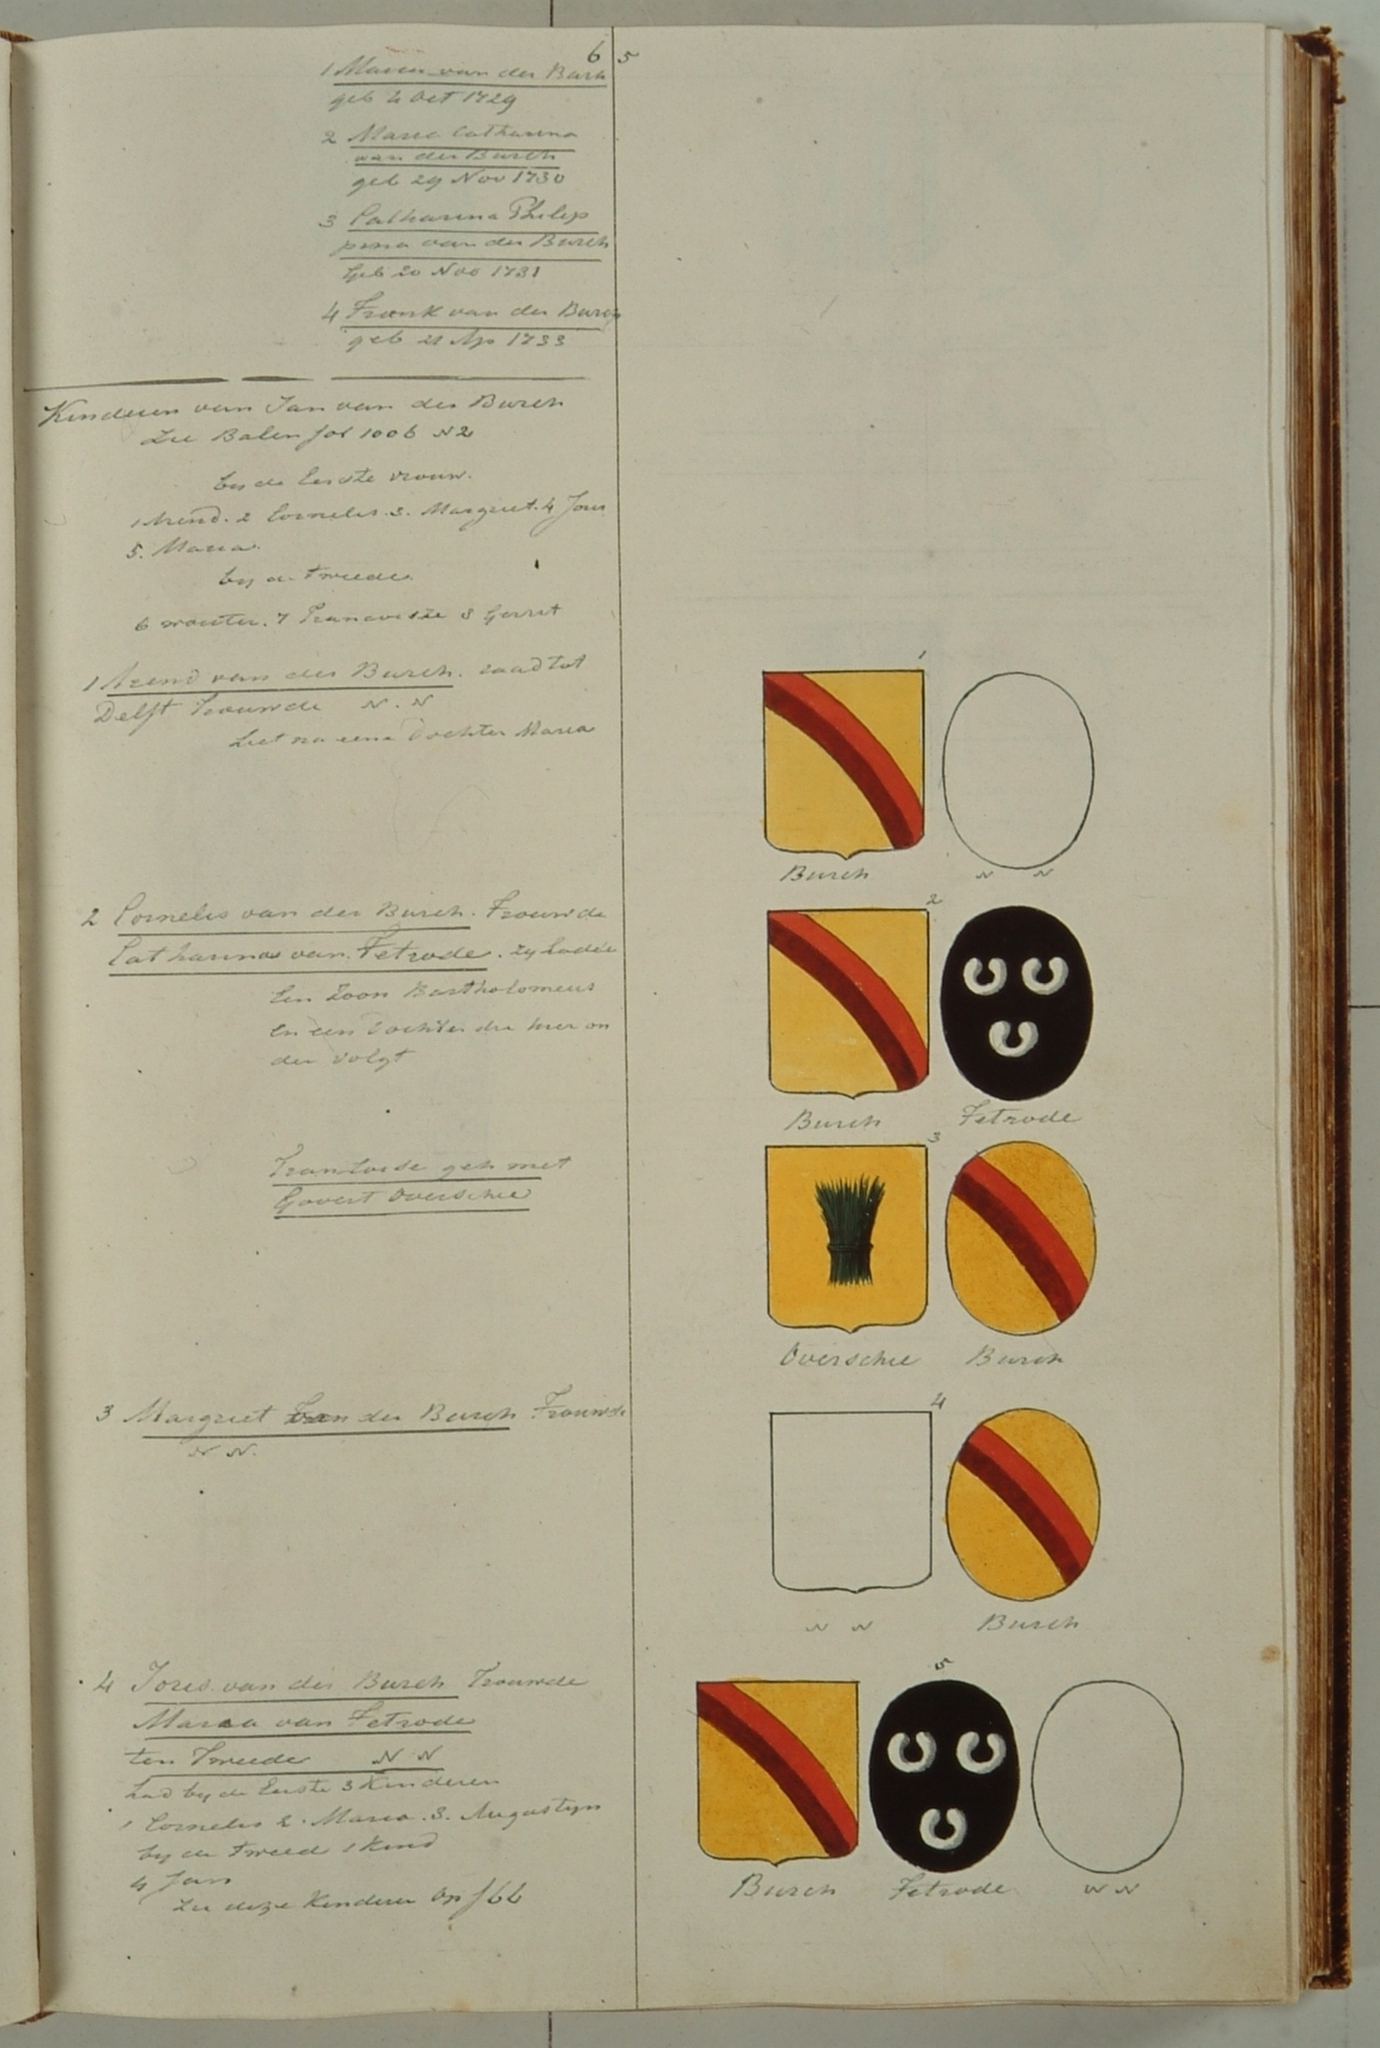 6 5
1 Maria van der Burch
geb 2 Oct 1729
2 Maria Catharina
van der Burch
geb 29 Nov 1730
3 Catharina Philip
pina van der Burch
geb 20 Nov 1731
4 Frank van der Burch
geb 21 Ap 1733
Kinderen van Jan van der Burch
Zie Balen fol 1006 N2
by de Eerste vrouw.
1 Arend. 2 Cornelis. 3. Margriet. 4 Joris
5. Maria.
by de Tweede.
6 wouter. 7 Francoisie 8 Gerrit
1 Arend van der Burch. raad tot
Delft Trouwde N. N
Liet na eene Dochter Maria
1
Burch N N
2 Cornelis van der Burch. Trouwde
Catharina van Tetrode. zy hadde
Een Zoon Bartholomeus
en een Dochter die hier on
der volgt
2
Burch Tetrode
Francoise geh met
Govert Overschie
3
Overschie Burch
3 Margriet van der Burch Trouwde
N N.
4
N N Burch
4 Joris van der Burch Trouwde
Maria van Tetrode
ten Tweede N N
had by de Eerste 3 Kinderen
1 Cornelis 2. Maria. 3. Augustyn
by de Tweed 1 Kind
4 Jan
Zie deze Kinderen op f 66
5
Burch Tetrode N N